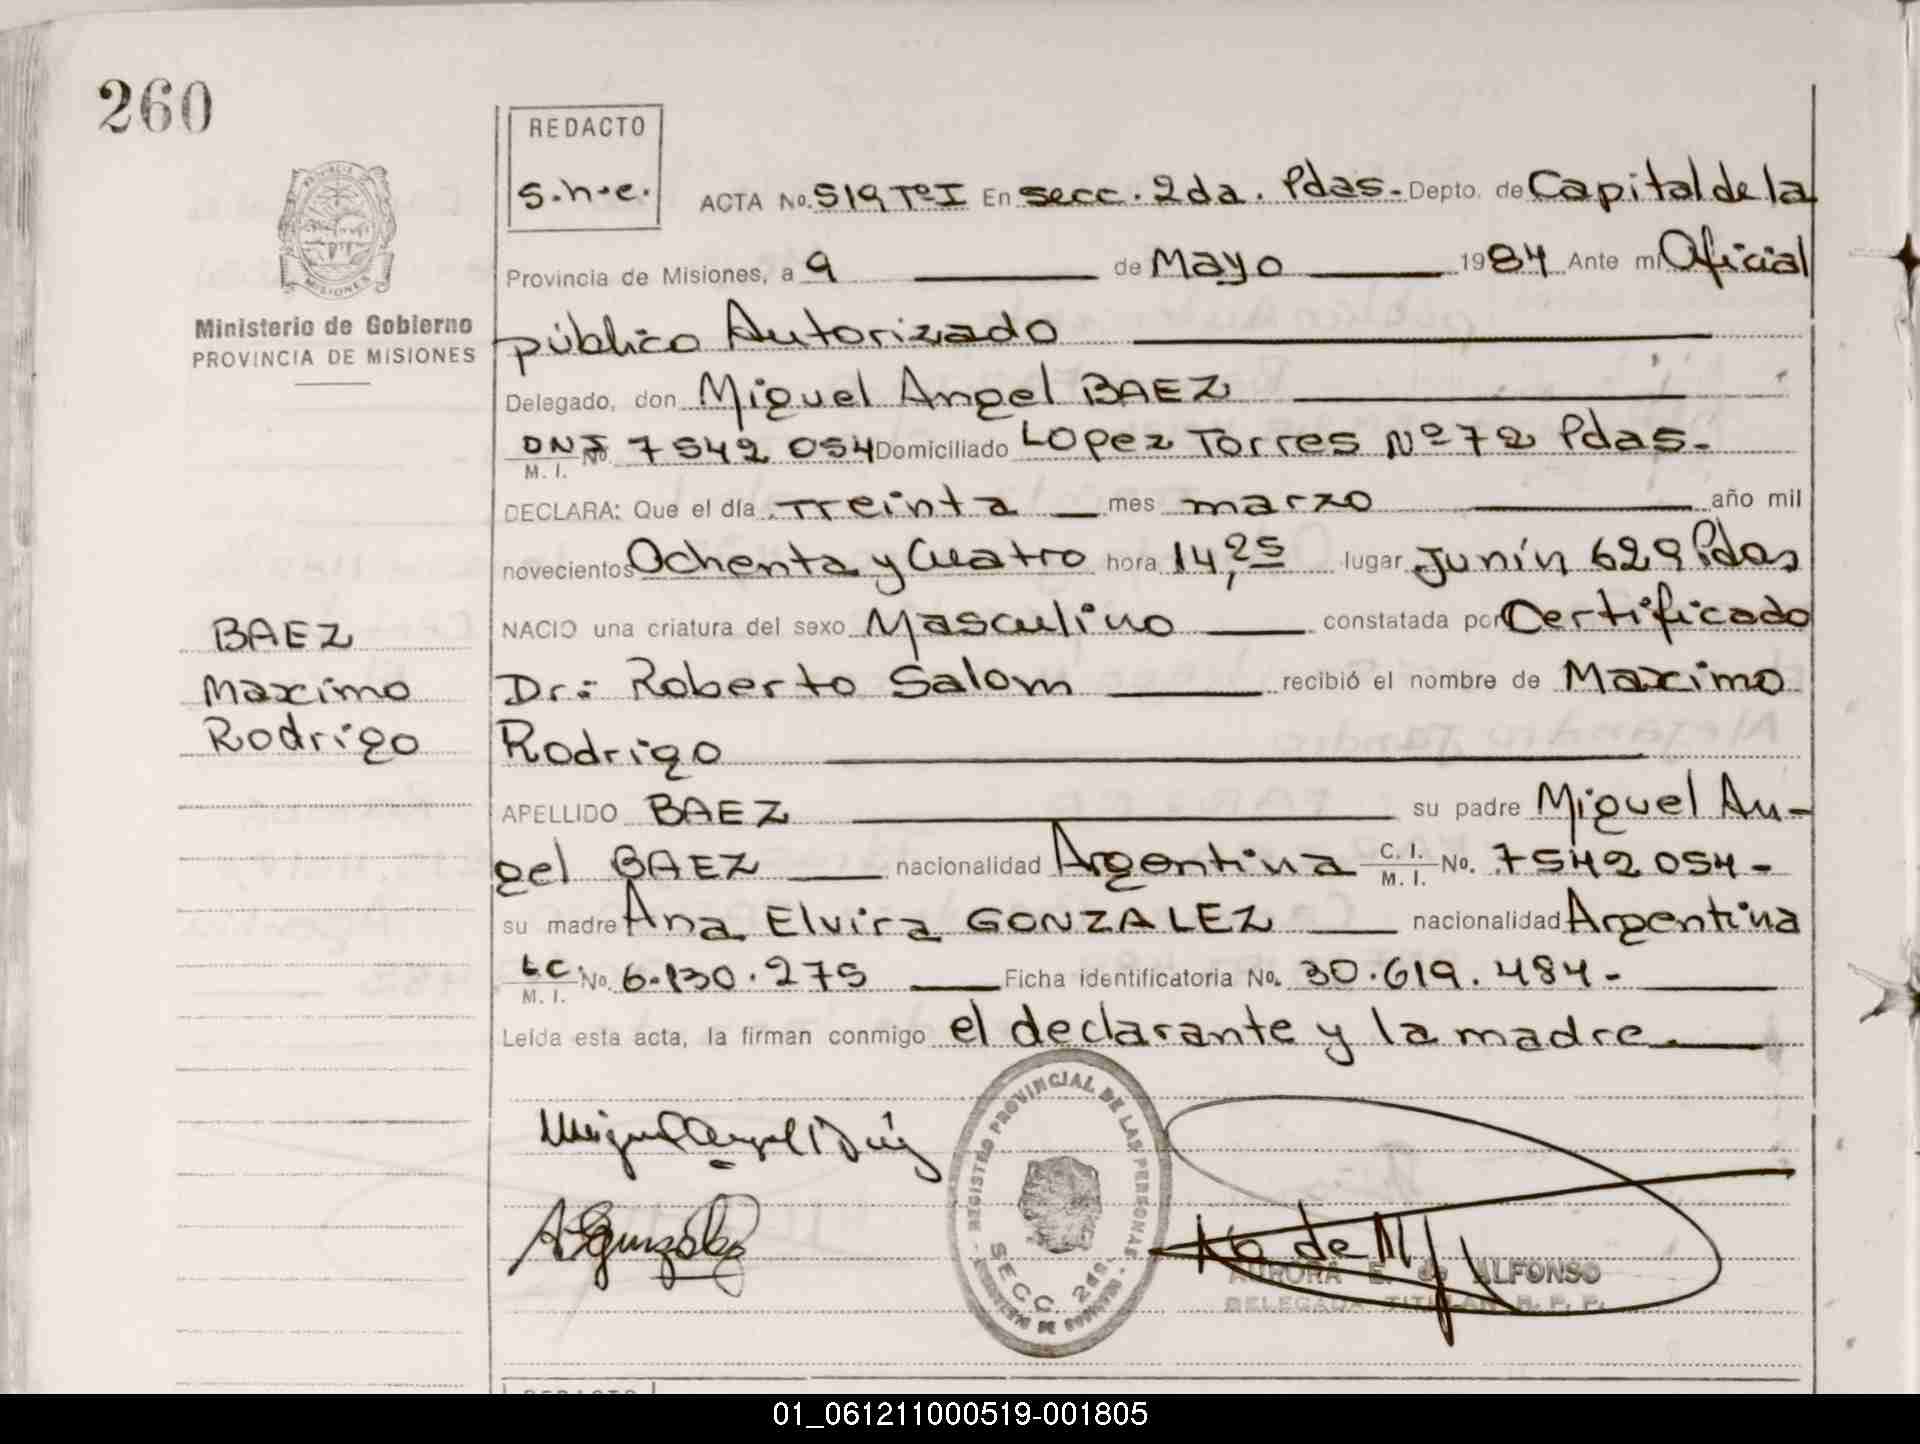 260
REDACTO
s.h.e.
ACTA No. 519 Tº I En secc. 2da. Pdas- Depto. de Capital de la
Provincia de Misiones, a 9 de Mayo 1984 Ante mi Oficial
público Autorizado
Delegado, don Miguel Angel BAEZ
DNI No 7542 054 Domiciliado LOPez Torres Nº 72 Pdas-
M. I.
DECLARA: Que el día Treinta mes marzo año mil
novecientos Ochenta y Cuatro hora 14,25 lugar Junín 629 Pdas
NACIO una criatura del sexo Masculino constatada por Certificado
Dr: Roberto Salom recibió el nombre de Maximo
Rodrigo
APELLIDO BAEZ su padre Miguel An-
gel BAEZ nacionalidad Argentina C. I. No. 7542054-
M. I.
su madre Ana Elvira GONZALEZ nacionalidad Argentina
LC No. 6.130.275 Ficha identificatoria No. 30.619.484-
M. I.
Leída esta acta, la firman conmigo el declarante y la madre
PROVINCIA DE
MISIONES
Ministerio de Gobierno
PROVINCIA DE MISIONES
BAEZ
Maximo
Rodrigo
REGISTRO PROVINCIAL DE LAS PERSONAS
SECC. 2da.
MINISTERIO DE GOBIERNO
AURORA E. de ALFONSO
DELEGADA TITULAR R. P. P.
REDACTO
01_061211000519-001805